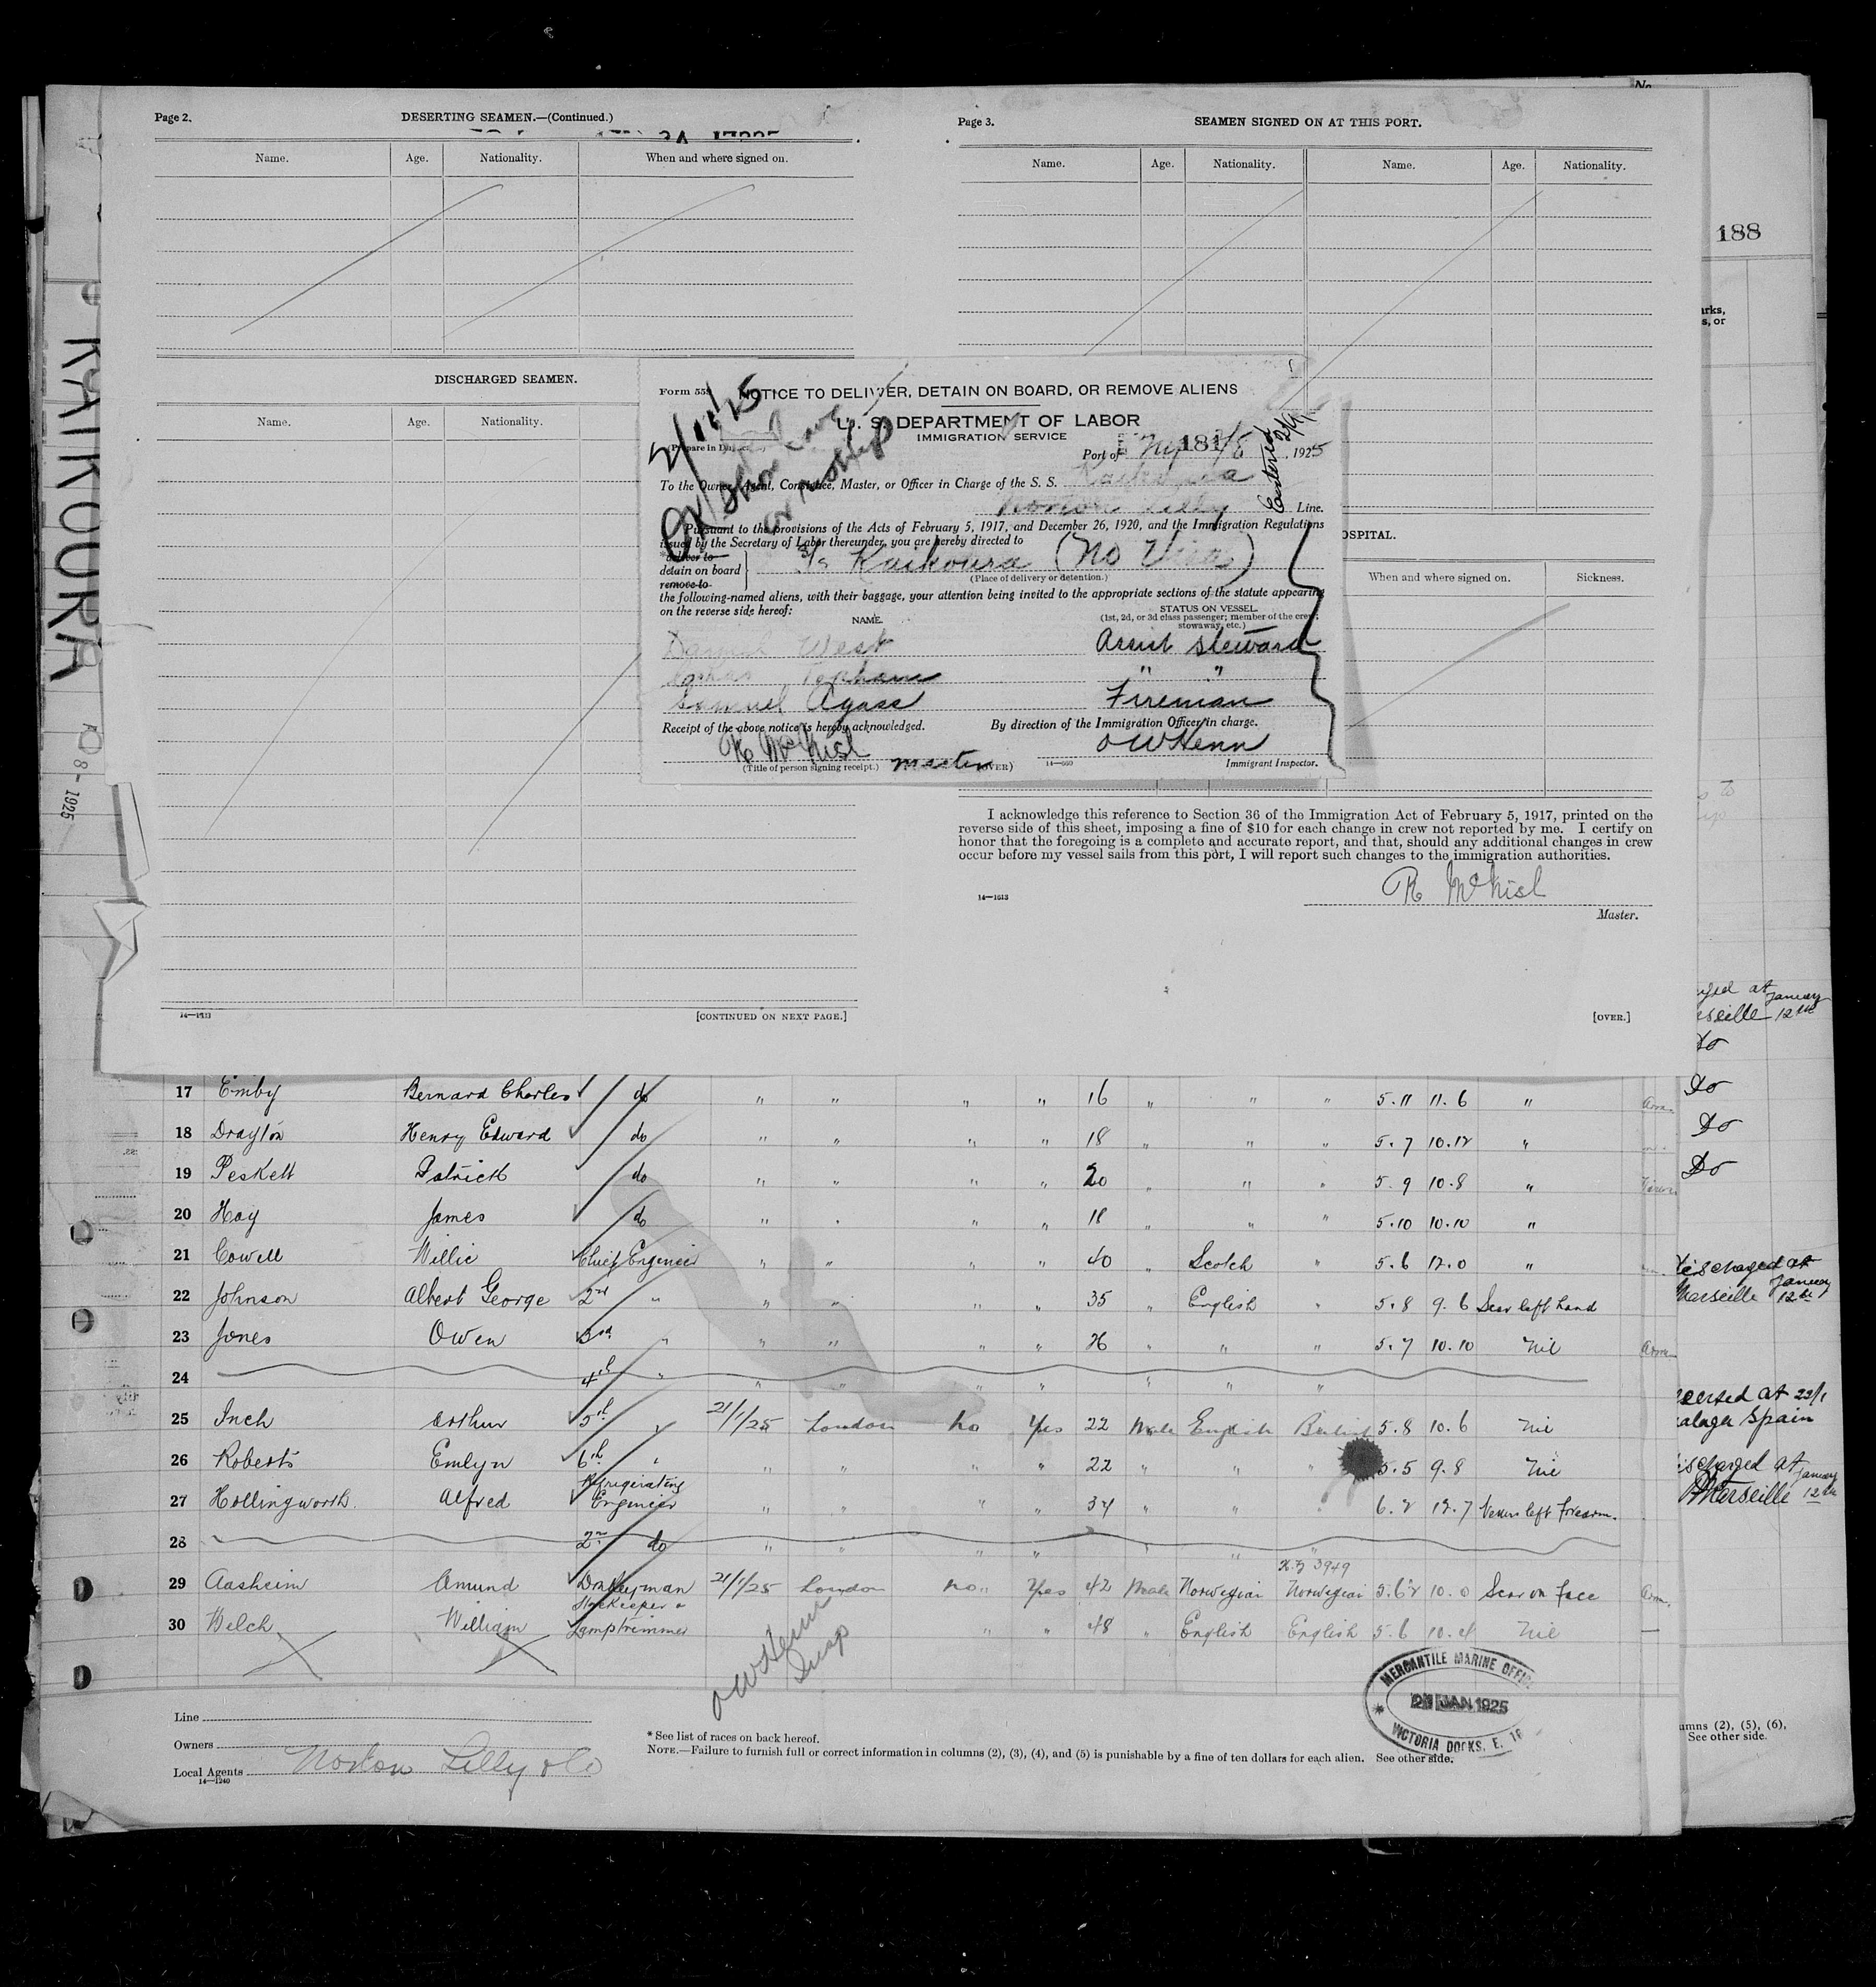 No.
Page 2.
DESERTING SEAMEN.—(Continued.)
Name. Age. Nationality. When and where signed on.
Page 3.
SEAMEN SIGNED ON AT THIS PORT.
Name. Age. Nationality. Name. Age. Nationality.
188
arks,
s, or
KAIKOURA
8-1925
DISCHARGED SEAMEN.
Name. Age. Nationality.
OSPITAL.
When and where signed on. Sickness.
Form 55
NOTICE TO DELIVER, DETAIN ON BOARD, OR REMOVE ALIENS
U. S. DEPARTMENT OF LABOR
IMMIGRATION SERVICE
2/11/25
OK/Shore Leave
Prepare in
Port of Ny 181 2/8, 1925
Entered 2/9/
To the Owner, Agent, Consignee, Master, or Officer in Charge of the S. S. Kaikoura
Norton Lilly Line.
Pursuant to the provisions of the Acts of February 5, 1917, and December 26, 1920, and the Immigration Regulations
issued by the Secretary of Labor thereunder, you are hereby directed to
deliver to
detain on board S/S Kaikoura (No Visa)
remove to
(Place of delivery or detention.)
the following-named aliens, with their baggage, your attention being invited to the appropriate sections of the statute appearing
on the reverse side hereof:
NAME. STATUS ON VESSEL.
(1st, 2d, or 3d class passenger; member of the crew;
stowaway, etc.)
West Assist Steward
Topham " "
Samuel Agass Fireman
Receipt of the above notice is hereby acknowledged. By direction of the Immigration Officer in charge.
R McNish OWHenn
(Title of person signing receipt.) master (OVER) 14—560 Immigrant Inspector.
I acknowledge this reference to Section 36 of the Immigration Act of February 5, 1917, printed on the
reverse side of this sheet, imposing a fine of $10 for each change in crew not reported by me. I certify on
honor that the foregoing is a complete and accurate report, and that, should any additional changes in crew
occur before my vessel sails from this port, I will report such changes to the immigration authorities.
R McNish
14—1613
Master.
14—1613 [CONTINUED ON NEXT PAGE.] [OVER.]
at January
seille 12th
Do
17 Emby Bernard Charles do " " " " 16 " " " 5.11 11.6 " Do
18 Drayton Henry Edward do " " " " 18 " " " 5.7 10.12 " Do
19 Peskett Patrick do " " " " 20 " " " 5.9 10.8 " Do
20 Hay James do " " " " 18 " " " 5.10 10.10 "
21 Cowell Willie Chief Engineer " " " " 40 " Scotch " 5.6 12.0 " ischarged at
22 Johnson Albert George 2nd " " " " " 35 " English " 5.8 9.6 Scar left hand Marseille January 12th
23 Jones Owen 3rd " " " " " 26 " " " 5.7 10.10 Nil
24 4th " " " " " " " "
25 Inch Arthur 5th " 21/1/25 London No Yes 22 Male English British 5.8 10.6 Nil eserted at 22/1
alaga Spain
26 Roberts Emlyn 6th " " " " " 22 " " " 5.5 9.8 Nil ischarged at
27 Hollingworth. Alfred Refrigerating Engineer " " " " 34 " " " 6.2 12.7 left forearm. Marseille January 12th
28 2nd do " " " " " " "
H.Z 3949
29 Aasheim Amund Donkeyman 21/1/25 London No Yes 42 Male Norwegian Norwegian 5.6½ 10.0 Scar on face
30 Welch William Storekeeper & Lamptrimmer " " 48 " English English 5.6 10.4 Nil
OWHenn
Insp
MERCANTILE MARINE OFFICE
JAN 1925
VICTORIA DOCKS, E. 16
Line
Owners
Local Agents Norton Lilly & Co
14—1240
* See list of races on back hereof.
NOTE.—Failure to furnish full or correct information in columns (2), (3), (4), and (5) is punishable by a fine of ten dollars for each alien. See other side.
umns (2), (5), (6),
See other side.